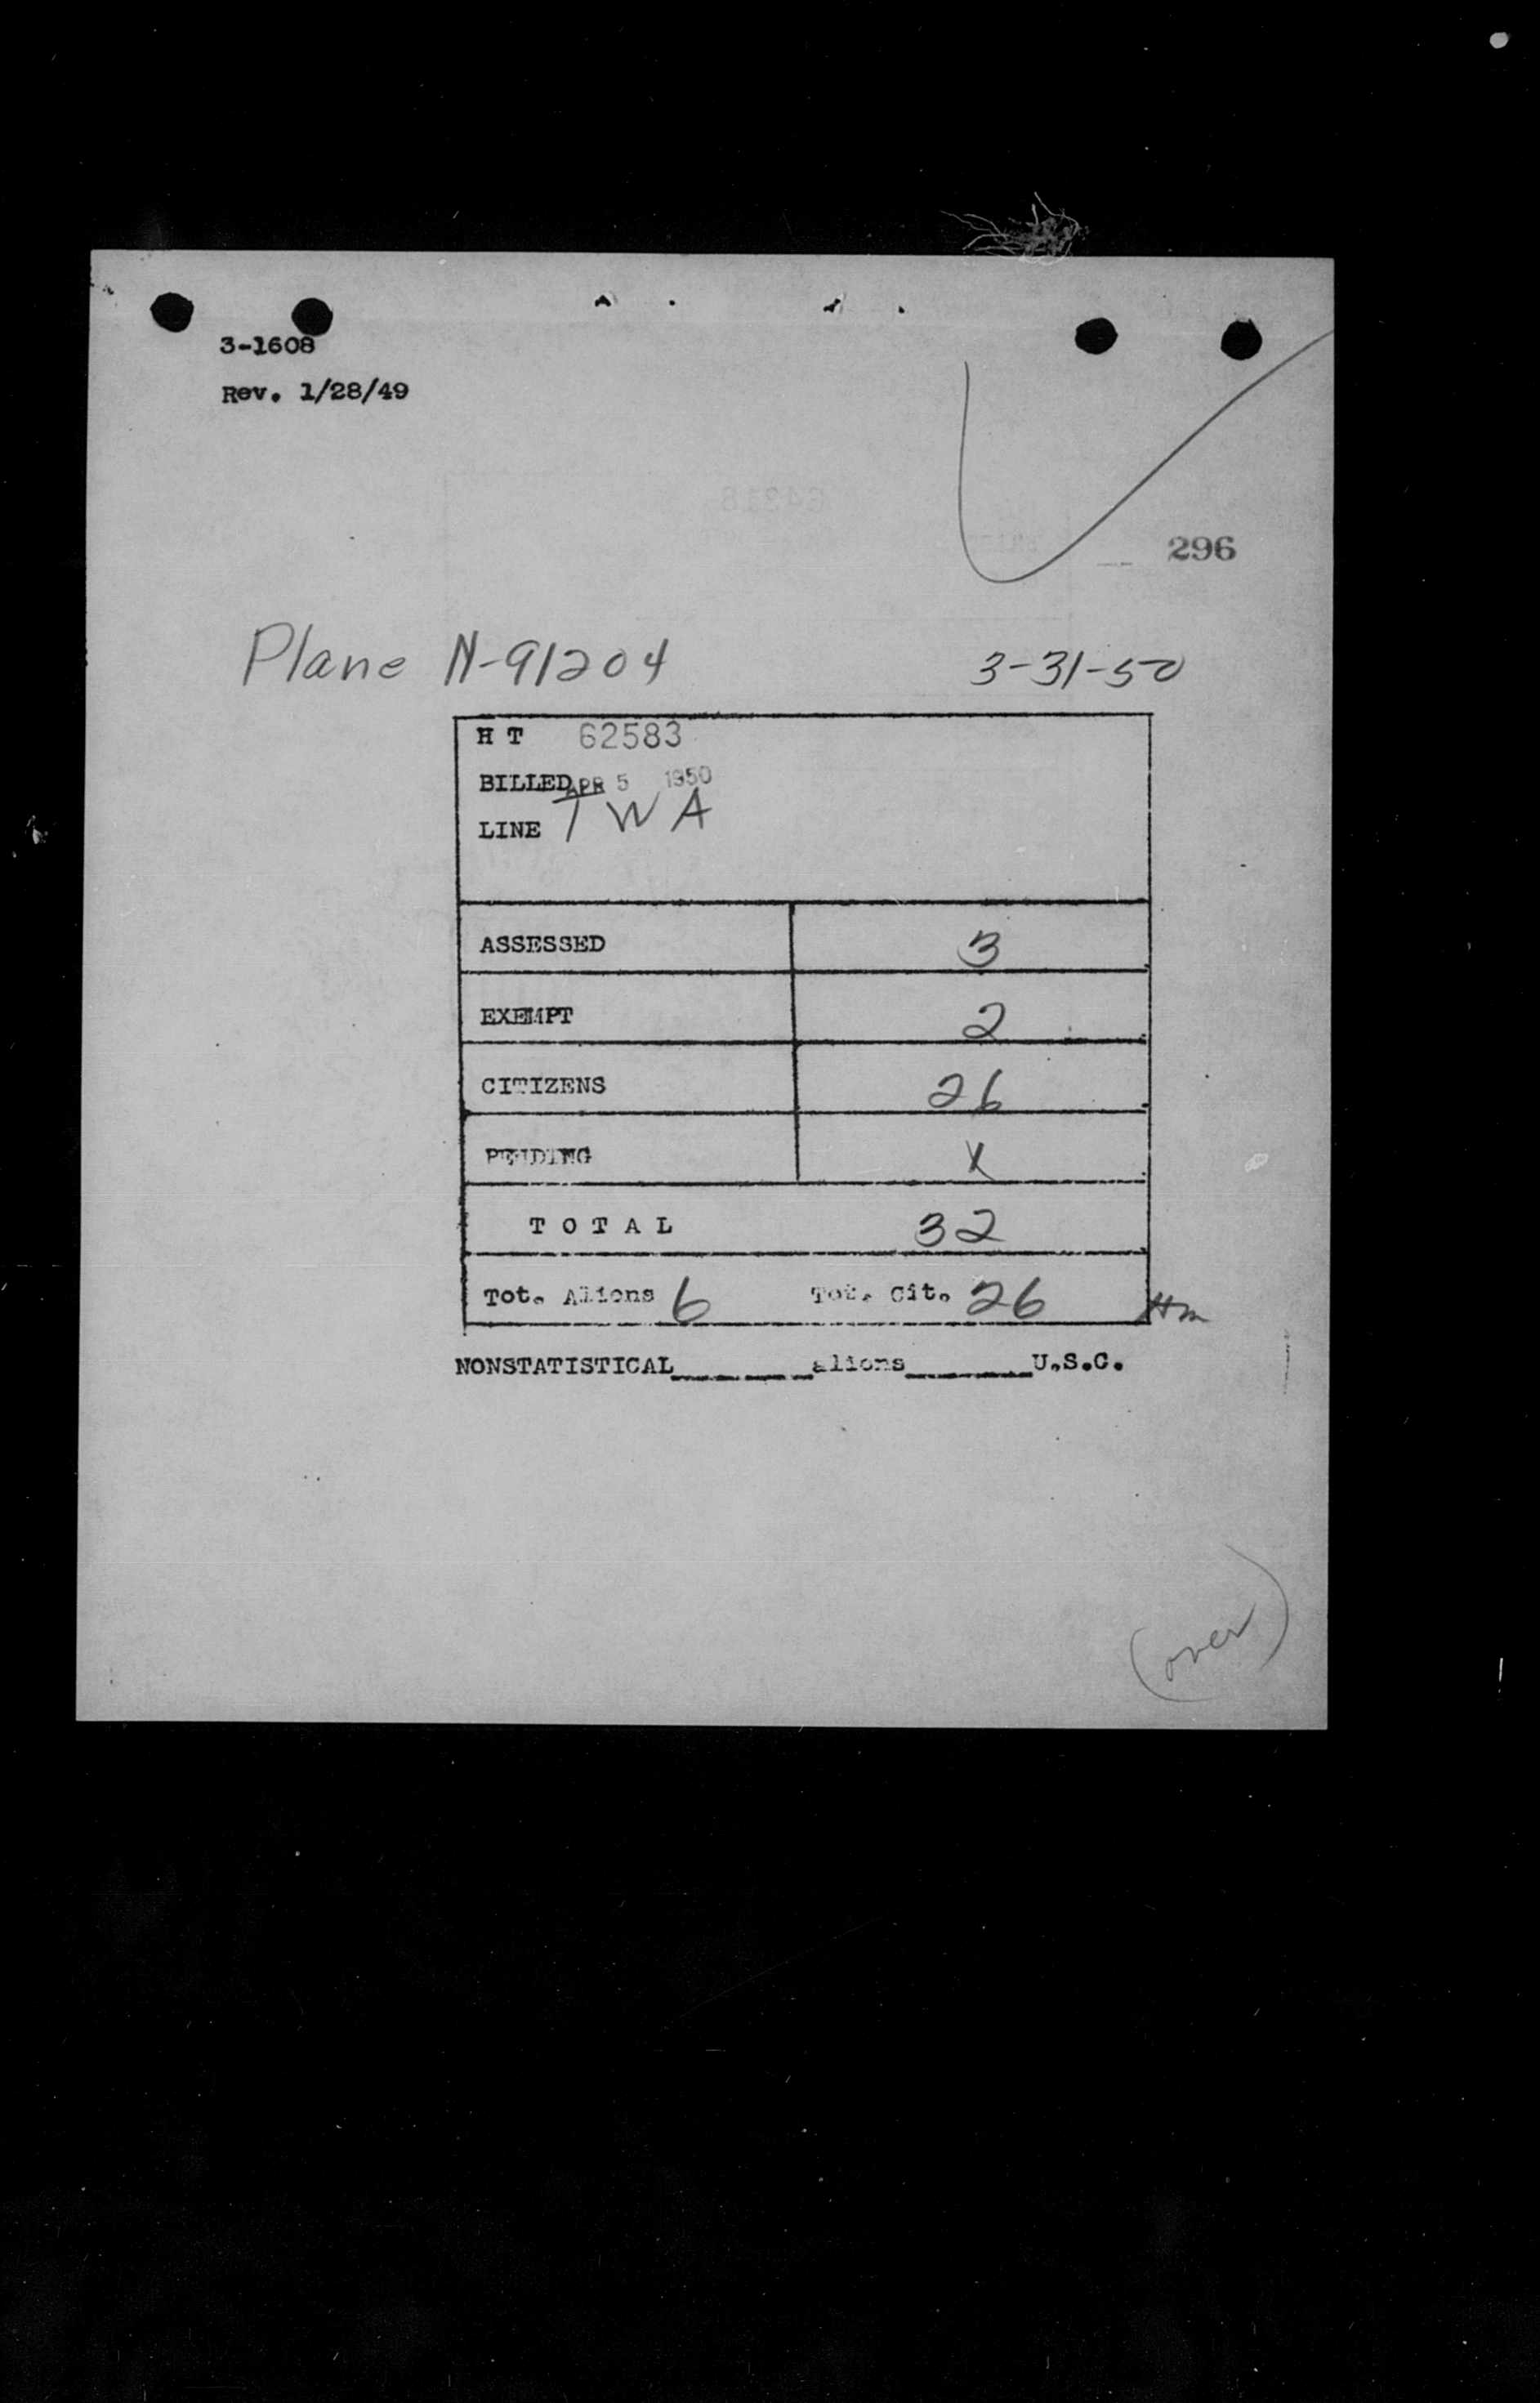 3-1608
Rev. 1/28/49
296
Plane N-91204 3-31-50
H T 62583
BILLED APR 5 1950
LINE TWA
ASSESSED 3
EXEMPT 2
CITIZENS 26
PENDING X
T O T A L 32
Tot. Aliens 6 Tot. Cit. 26 Hm
NONSTATISTICAL________aliens________U.S.C.
(over)